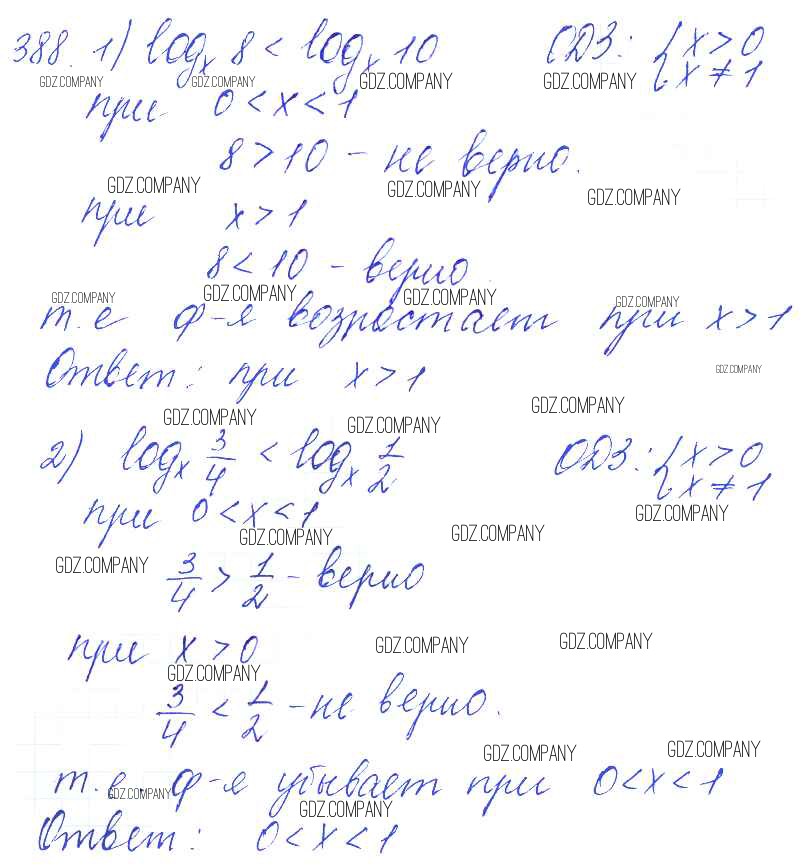 388. 1) logₓ 8 < logₓ 10 ОДЗ: { x > 0
x ≠ 1
GDZ.COMPANY GDZ.COMPANY GDZ.COMPANY GDZ.COMPANY
при 0 < x < 1
8 > 10 – не верно.
GDZ.COMPANY GDZ.COMPANY GDZ.COMPANY
при x > 1
8 < 10 – верно.
GDZ.COMPANY GDZ.COMPANY GDZ.COMPANY GDZ.COMPANY
т.е ф-я возрастает при x > 1
Ответ: при x > 1
GDZ.COMPANY
GDZ.COMPANY GDZ.COMPANY GDZ.COMPANY
2) logₓ 3/4 < logₓ 1/2 ОДЗ: { x > 0
x ≠ 1
при 0 < x < 1
GDZ.COMPANY
GDZ.COMPANY GDZ.COMPANY
GDZ.COMPANY
3/4 > 1/2 – верно
при x > 0
GDZ.COMPANY GDZ.COMPANY
GDZ.COMPANY
3/4 < 1/2 – не верно.
GDZ.COMPANY GDZ.COMPANY
т.е. ф-я убывает при 0 < x < 1
GDZ.COMPANY GDZ.COMPANY
Ответ: 0 < x < 1